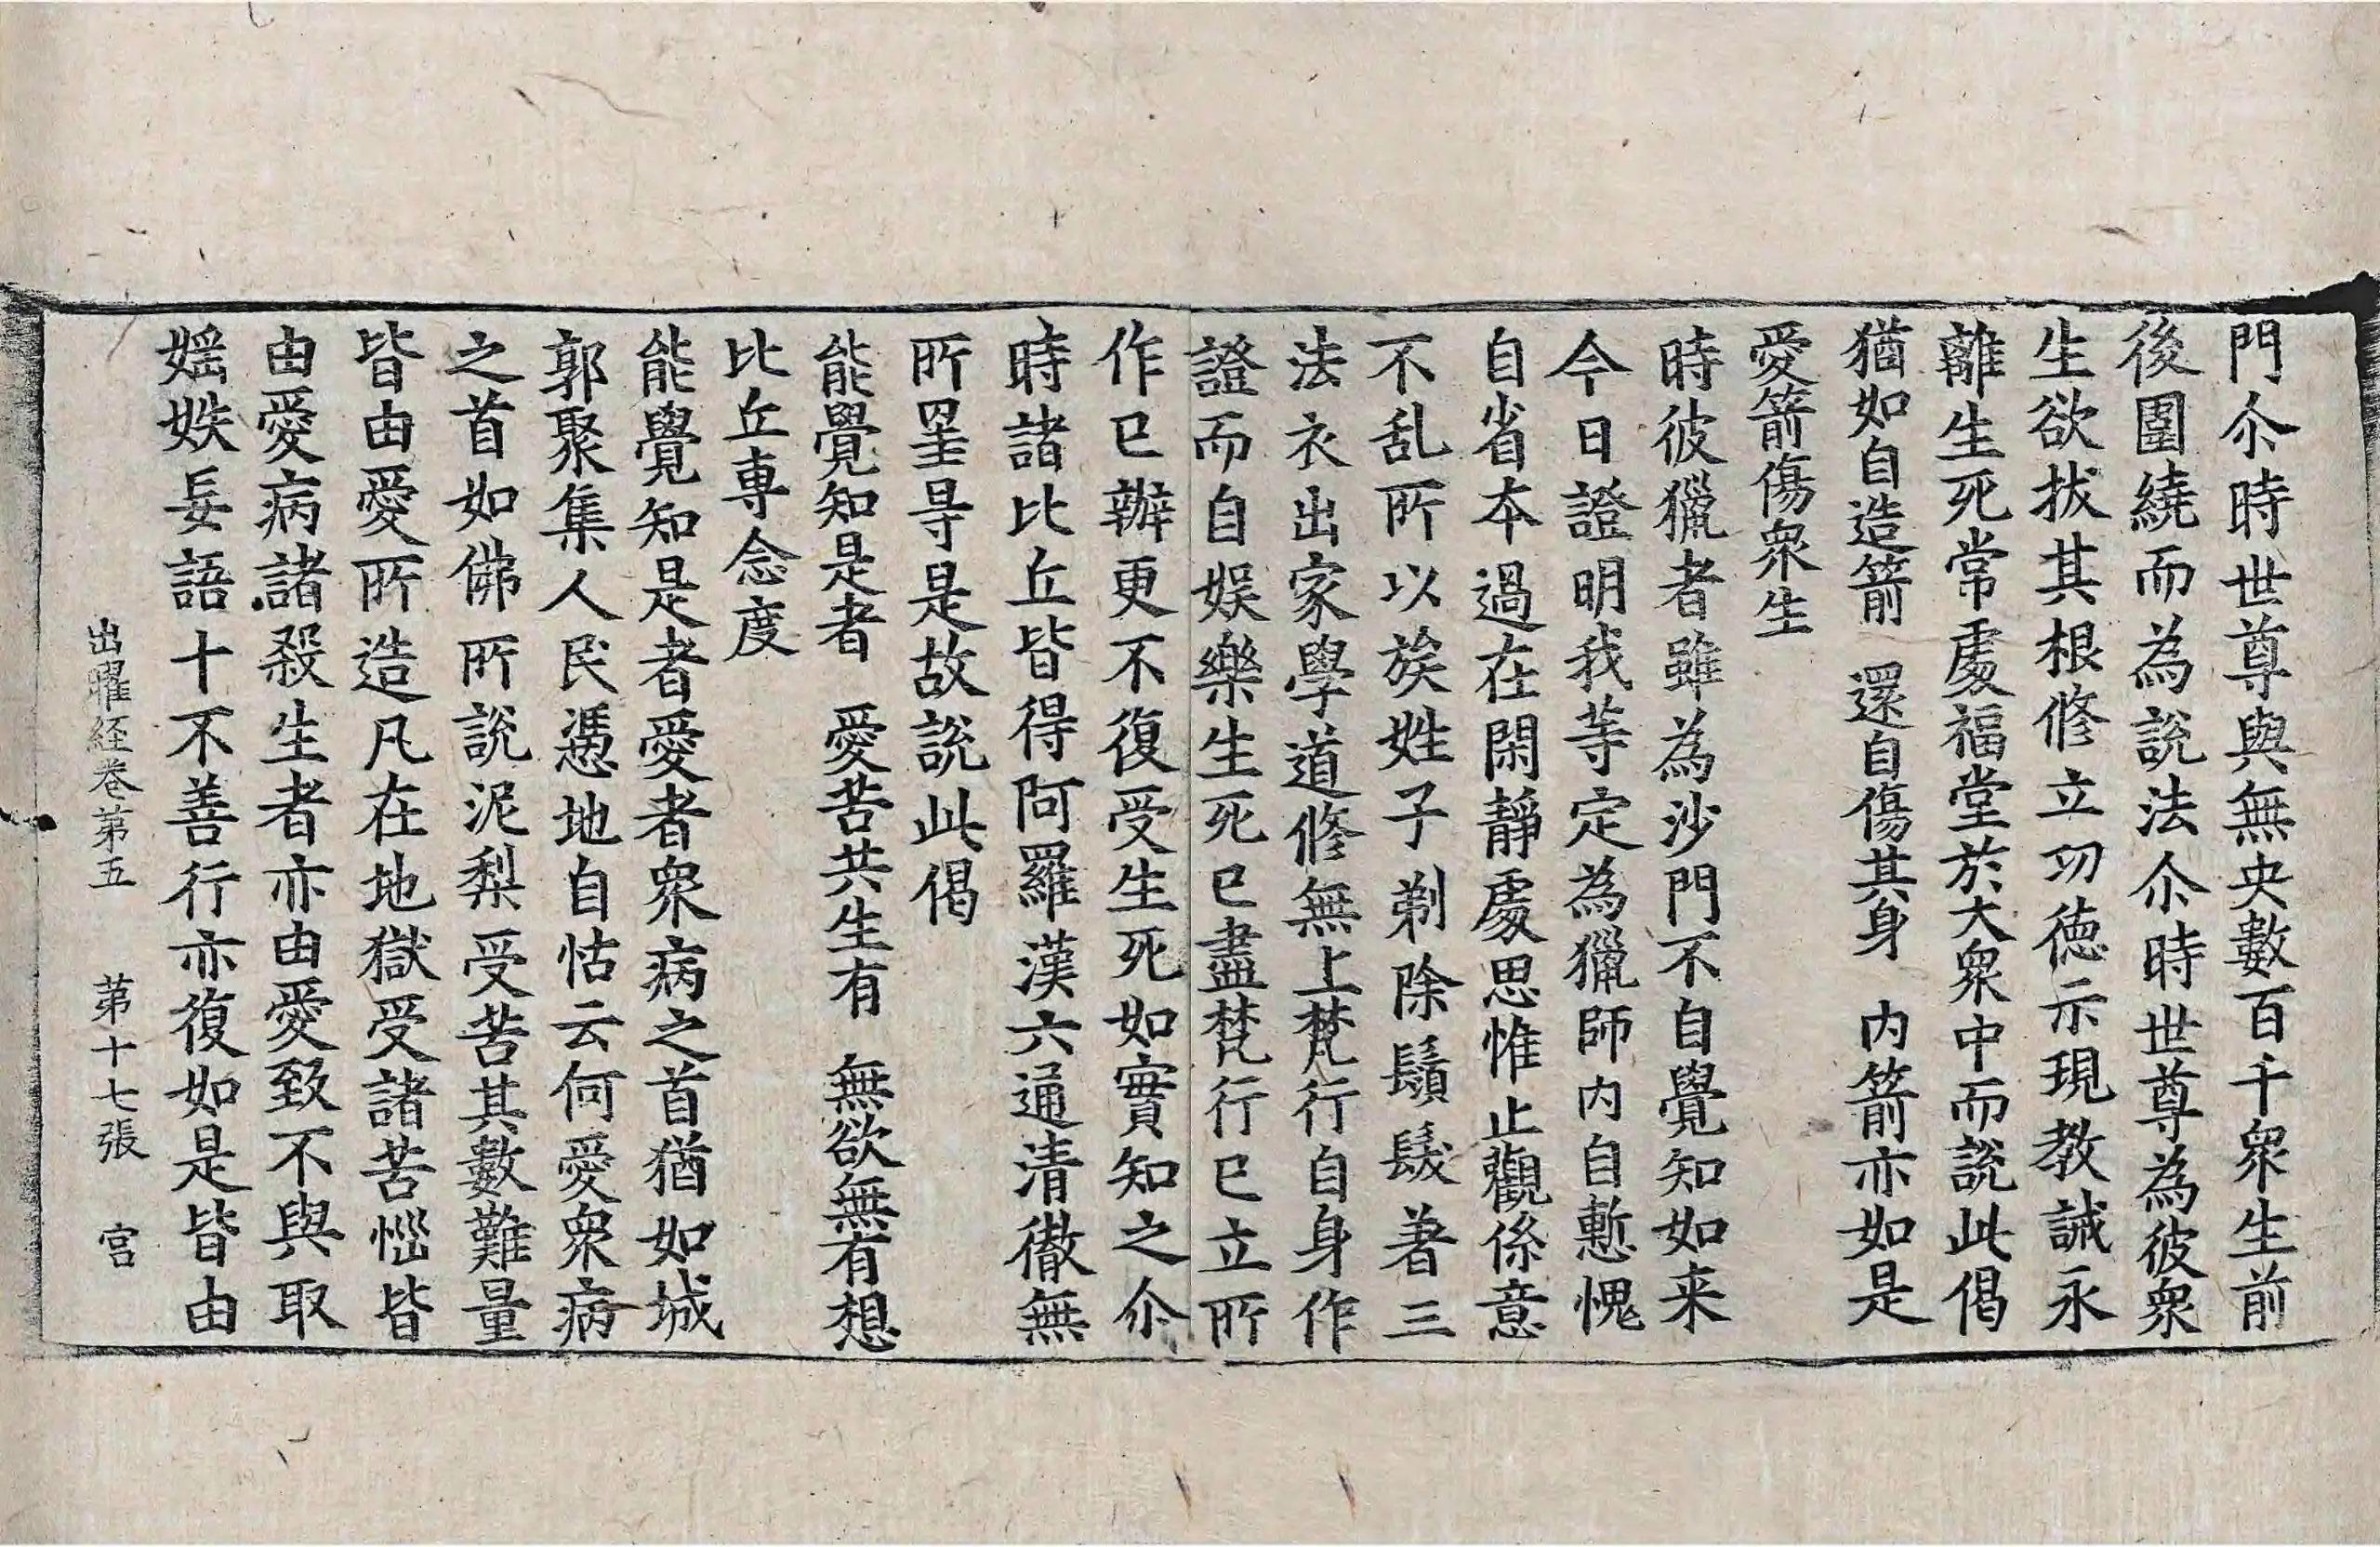 門尒時世尊與無央數百千衆生前
後圍繞而為說法尒時世尊為彼衆
生欲拔其根修立功德示現教誡永
離生死常處福堂於大衆中而說此偈
猶如自造箭 還自傷其身 内箭亦如是
愛箭傷衆生
時彼獵者雖為沙門不自覺知如来
今日證明我等定為獵師内自慙愧
自省本過在閑靜處思惟止觀係意
不乱所以族姓子剃除鬚髮著三
法衣出家學道修無上梵行自身作
證而自娛樂生死已盡梵行已立所
作已辦更不復受生死如實知之尒
時諸比丘皆得阿羅漢六通清徹無
所罣㝵是故說此偈
能覺知是者 愛苦共生有 無欲無有想
比丘專念度
能覺知是者愛者衆病之首猶如城
郭聚集人民憑地自怙云何愛衆病
之首如佛所說泥犁受苦其數難量
皆由愛所造凡在地獄受諸苦惱皆
由愛病諸殺生者亦由愛致不與取
婬妷妄語十不善行亦復如是皆由
出曜経卷第五 第十七張 宮